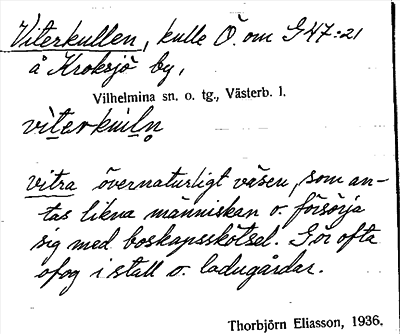 Viterkullen, kulle Ö. om G47:21
å Kroksjö by,
Vilhelmina sn. o. tg., Västerb. l.
vitra övernaturligt väsen, som an-
tas likna människan o. försörja
sig med boskapsskötsel. Gör ofta
ofog i stall o. ladugårdar.
Thorbjörn Eliasson, 1936.